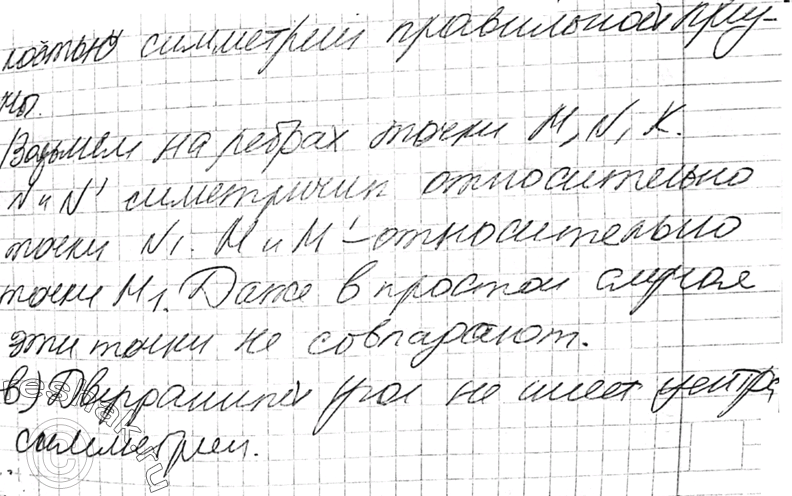 костью симметрии правильной приз-
мы.
Возьмем на ребрах точки M, N, K.
N и N' симетричны относительно
точки N₁. M и M' – относительно
точки M₁. Даже в простом случае
эти точки не совпадают.
в) Двугранный угол не имеет центра
симметрии.